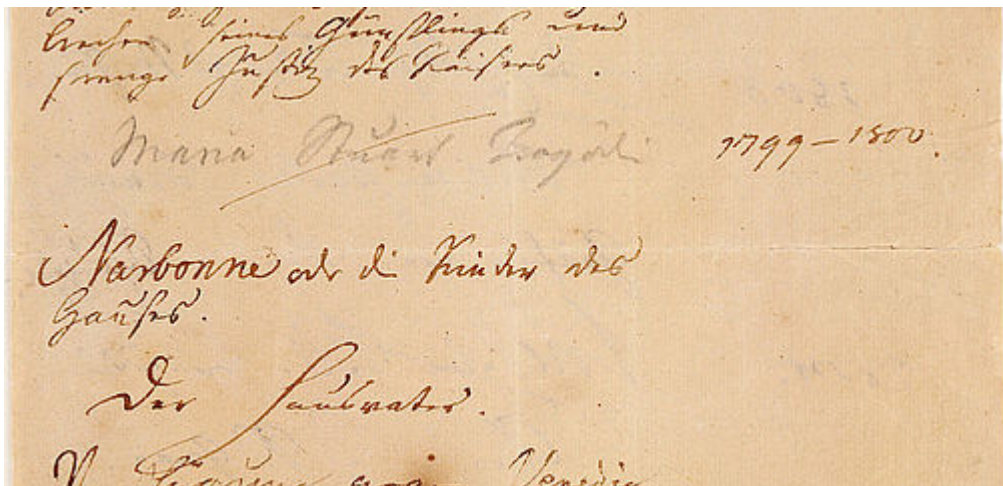 brechen seines Günstlings und
strenge Justiz des Kaisers.
Maria Stuart Tragödie 1799–1800.
Narbonne oder die Kinder des
Hauses.
Der Hausvater.
Venedig